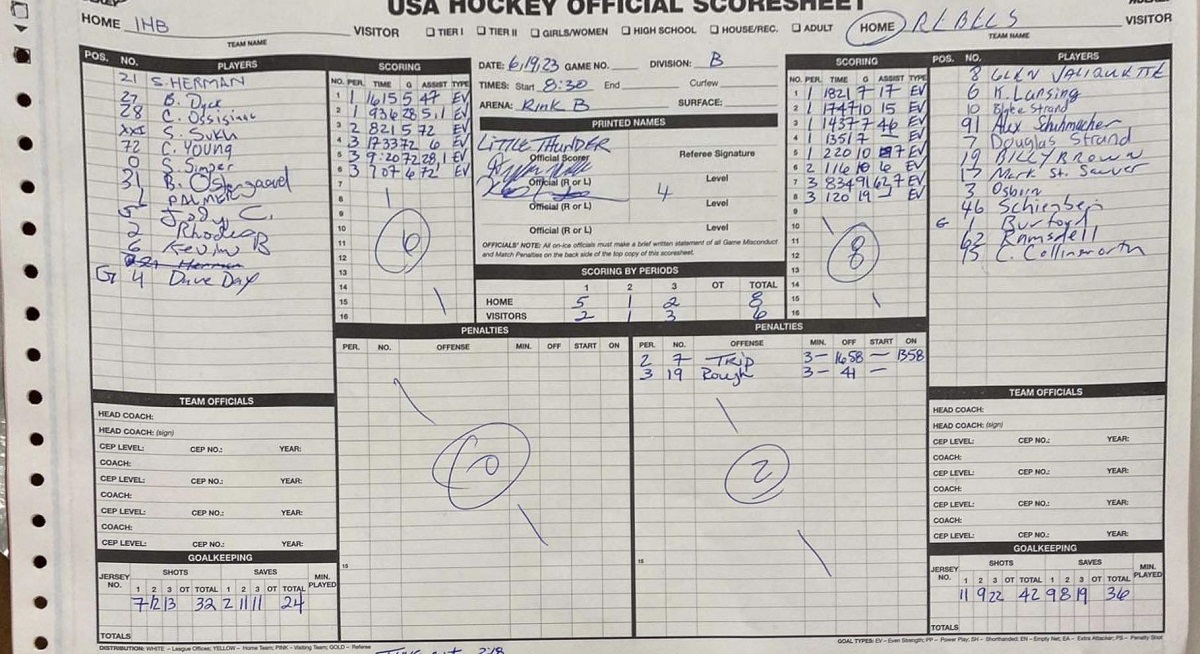 USA HOCKEY OFFICIAL SCORESHEET
HOME IHB VISITOR
TEAM NAME
☐ TIER I ☐ TIER II ☐ GIRLS/WOMEN ☐ HIGH SCHOOL ☐ HOUSE/REC. ☐ ADULT
HOME REBELS VISITOR
TEAM NAME
POS. NO. PLAYERS
21 S. HERMAN
27 B. Dyck
28 C. Ossisinac
XXI S. Sukh
72 C. Young
0 S. Simper
31 B. Ostergaard
1 PALMER
5 Jody C.
2 Rhodes
6 Kevin B
Herman
G 4 Dave Day
SCORING
NO. PER. TIME G ASSIST TYPE
1 1 1615 5 47 EV
2 1 936 28 5,1 EV
3 2 821 5 72 EV
4 3 1733 72 6 EV
5 3 9:20 72 28,1 EV
6 3 707 6 72 EV
7
8
9
10
11
12
13
14
15
16
6
DATE: 6/19/23 GAME NO. DIVISION: B
TIMES: Start 8:30 End Curfew
ARENA: Rink B SURFACE:
PRINTED NAMES
LITTLE THUNDER
Official Scorer Referee Signature
Official (R or L) Level
4
Official (R or L) Level
Official (R or L) Level
OFFICIALS' NOTE: All on-ice officials must make a brief written statement of all Game Misconduct
and Match Penalties on the back side of the top copy of this scoresheet.
SCORING BY PERIODS
1 2 3 OT TOTAL
HOME 5 1 2 8
VISITORS 2 1 3 6
SCORING
NO. PER. TIME G ASSIST TYPE
1 1 1821 7 17 EV
2 1 1747 10 15 EV
3 1 1437 7 46 EV
4 1 13517 — EV
5 1 220 10 7 EV
6 2 116 10 6 EV
7 3 834 91 62,7 EV
8 3 120 19 - EV
9
10
11
12
13
14
15
16
8
POS. NO. PLAYERS
8 GLEN VALIQUETTE
6 K. Lansing
10 Blake Strand
91 Alex Shuhmacher
7 Douglas Strand
19 BILLY BROWN
17 Mark St. Sauver
3 Osburn
46 Schienbein
G 1 Burford
62 Ramsdell
15 C. Collinsworth
PENALTIES
PER. NO. OFFENSE MIN. OFF START ON
15
0
PENALTIES
PER. NO. OFFENSE MIN. OFF START ON
2 7 TRIP 3- 1658 — 1358
3 19 Rough 3- 41 —
15
2
TEAM OFFICIALS
HEAD COACH:
HEAD COACH: (sign)
CEP LEVEL: CEP NO.: YEAR:
COACH:
CEP LEVEL: CEP NO.: YEAR:
COACH:
CEP LEVEL: CEP NO.: YEAR:
COACH:
CEP LEVEL: CEP NO.: YEAR:
GOALKEEPING
JERSEY NO. SHOTS SAVES MIN. PLAYED
1 2 3 OT TOTAL 1 2 3 OT TOTAL
7 12 13 32 2 11 11 24
TOTALS
TEAM OFFICIALS
HEAD COACH:
HEAD COACH: (sign)
CEP LEVEL: CEP NO.: YEAR:
COACH:
CEP LEVEL: CEP NO.: YEAR:
COACH:
CEP LEVEL: CEP NO.: YEAR:
COACH:
CEP LEVEL: CEP NO.: YEAR:
GOALKEEPING
JERSEY NO. SHOTS SAVES MIN. PLAYED
1 2 3 OT TOTAL 1 2 3 OT TOTAL
11 9 22 42 9 8 19 36
TOTALS
DISTRIBUTION: WHITE – League Offices; YELLOW – Home Team; PINK – Visiting Team; GOLD – Referee
GOAL TYPES: EV – Even Strength; PP – Power Play; SH – Shorthanded; EN – Empty Net; EA – Extra Attacker; PS – Penalty Shot